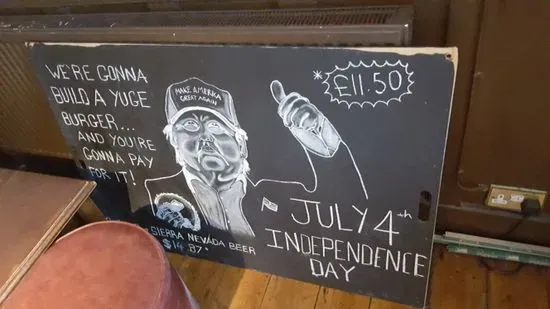 WE'RE GONNA
BUILD A YUGE
BURGER...
AND YOU'RE
GONNA PAY
FOR IT!
MAKE AMERIKA
GREAT AGAIN
*£11.50
SIERRA NEVADA BEER
$14.87*
JULY 4th
INDEPENDENCE
DAY